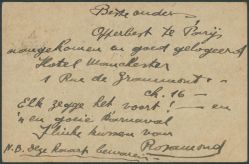 Beste ouders
Opperbest te Parijs
aangekomen en goed gelogeerd
Hotel Manchester
1 Rue de Grammont
ch. 16 —
Elk zegge het voort! — en
'n goeie Karnaval
kussen van
N.B. Deze kaart bewaren Rosamond